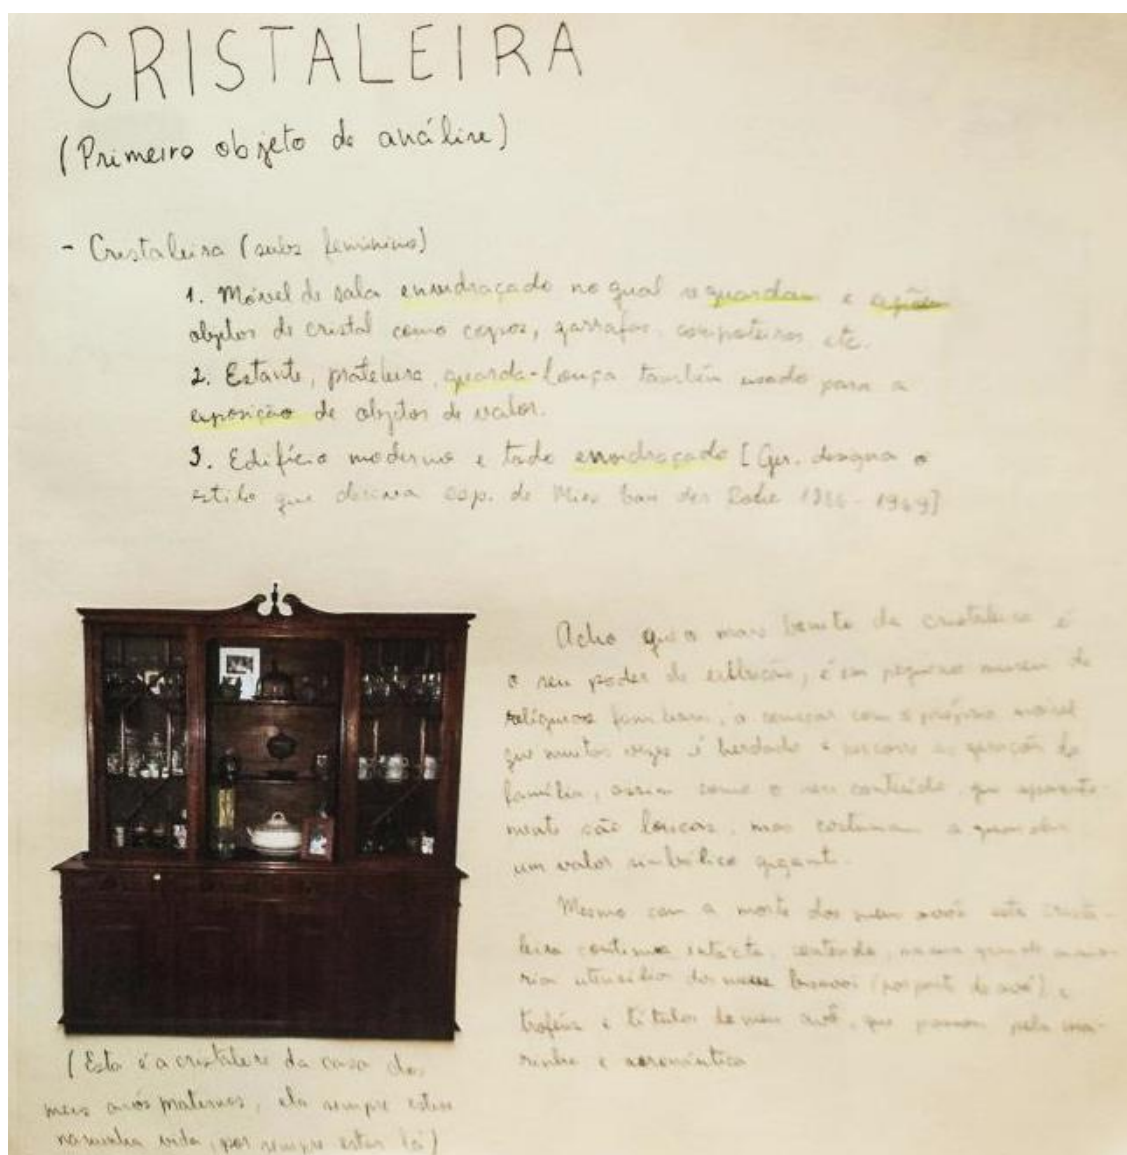 CRISTALEIRA
(Primeiro objeto de análise)
- Cristaleira (subs feminino)
1. Móvel de sala envidraçado no qual se guardam e
objetos de cristal como copos, garrafas, compoteiras etc.
2. Estante, prateleira, guarda-louça também usado para a
exposição de objetos de valor.
3. Edifício moderno e todo envidraçado [Ger. designa o
estilo que esp. de Mies van der Rohe 1886-1969]
Acho que o mais bonito da cristaleira é
o seu poder de exibição, é um pequeno museu de
relíquias familiares, a começar com o próprio móvel
que muitas vezes é herdado e as gerações da
família, assim como o seu conteúdo, que aparente-
mente são louças, mas costumam a guardar
um valor simbólico gigante.
Mesmo com a morte dos meus avós esta crista-
leira continua intacta, contendo, na sua grande maio-
ria utensílios dos meus bisavós (por parte de avó) e
troféus e títulos de meu avô, que passou pela ma-
rinha e aeronáutica
(Esta é a cristaleira da casa dos
meus avós maternos, ela sempre esteve
na minha vida, por sempre estar lá)